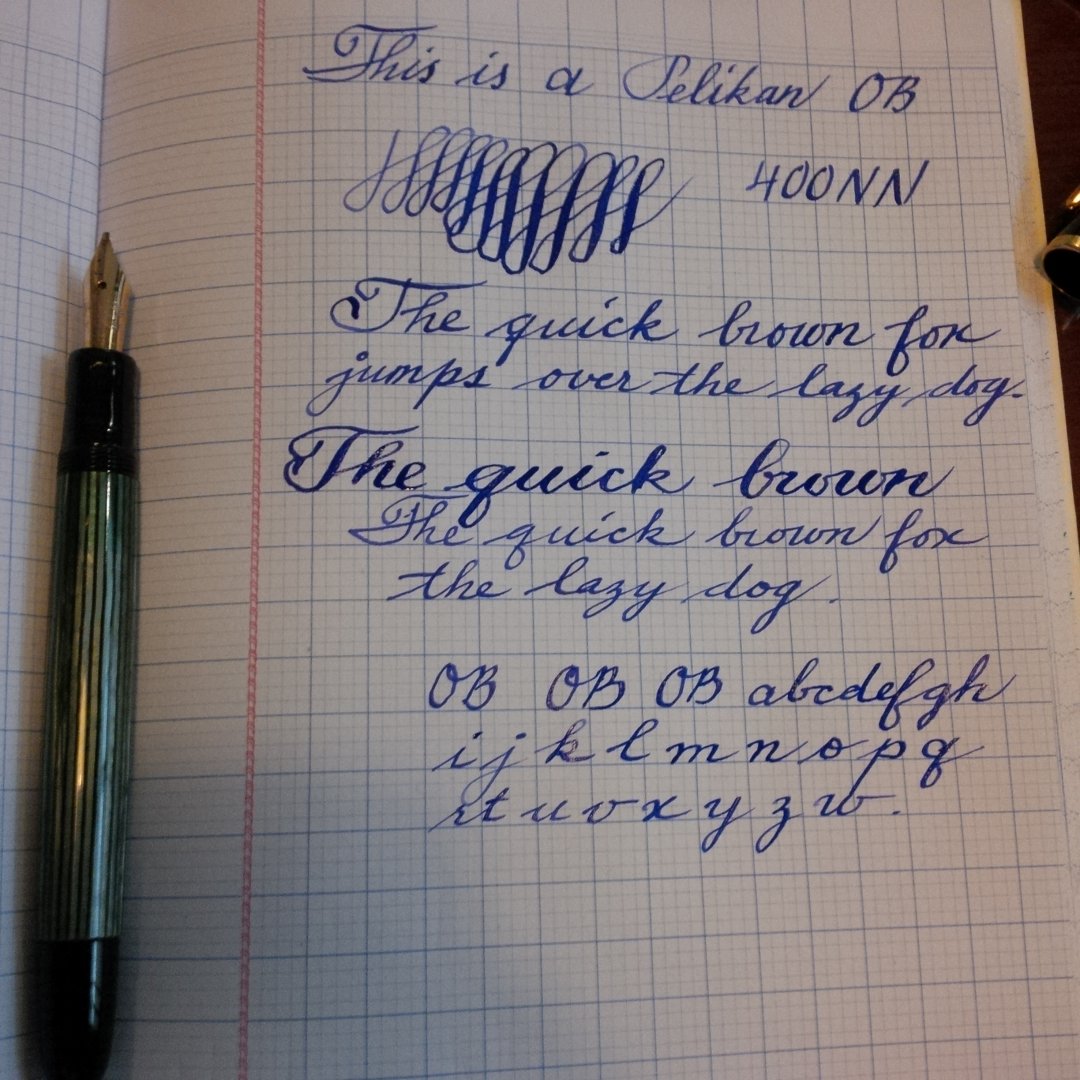 This is a Pelikan OB
400NN
The quick brown fox
jumps over the lazy dog.
The quick brown
The quick brown fox
the lazy dog.
OB OB OB abcdefgh
i j k l m n o p q
r s t u v x y z w.